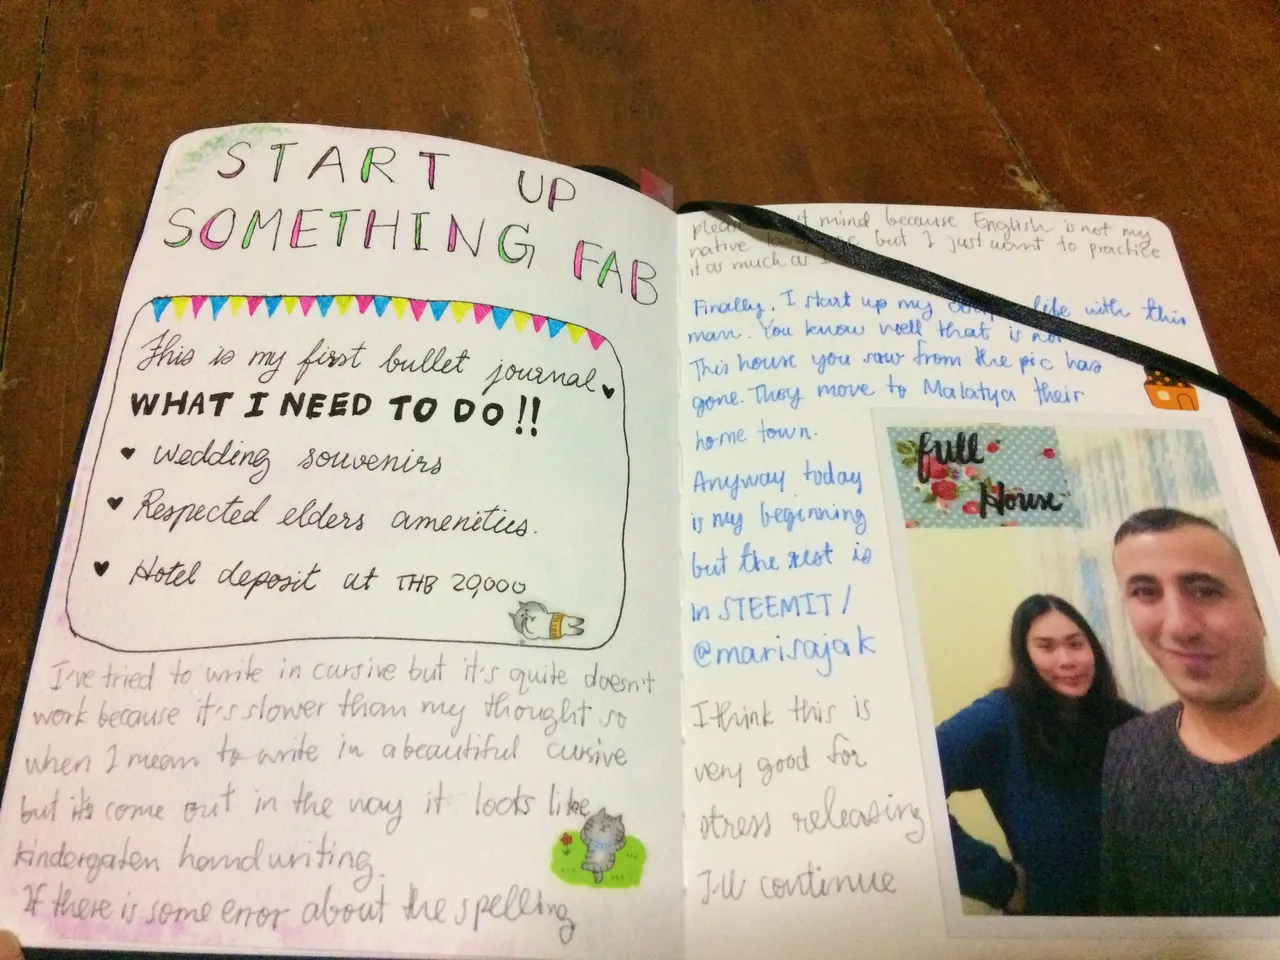 START UP
SOMETHING FAB
This is my first bullet journal
WHAT I NEED TO DO!!
wedding souvenirs
Respected elders amenities.
Hotel deposit at THB 20,000
I've tried to write in cursive but it's quite doesn't
work because it's slower than my thought so
when I mean to write in a beautiful cursive
but it's come out in the way it looks like
kindergaten handwriting.
If there is some error about the spelling
mind because English is not my
native but I just want to practice
it as much as I
Finally, I start up my life with this
man. You know well that is
This house you saw from the pic has
gone. They move to Malatya their
home town.
Anyway today
is my beginning
but the rest is
in STEEMIT/
@marisajak
I think this is
very good for
stress releasing
I'll continue
full
House